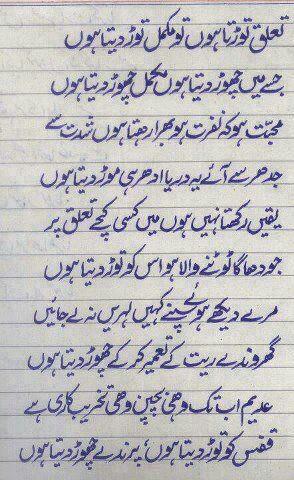 تعلق توڑتا ہوں تو مکمل توڑ دیتا ہوں
جسے میں چھوڑ دیتا ہوں مکمل چھوڑ دیتا ہوں
محبّت ہو کہ نفرت ہو بھرا رہتا ہوں شدت سے
جدھر سے آئے یہ دریا ادھر ہی موڑ دیتا ہوں
یقیں رکھتا نہیں ہوں میں کسی کچے تعلق پر
جو دھاگا ٹوٹنے والا ہو اس کو توڑ دیتا ہوں
مرے دیکھے ہوئے سپنے کہیں لہریں نہ لے جائیں
گھروندے ریت کے تعمیر کر کے چھوڑ دیتا ہوں
عدیم اب تک وھی بچپن وھی تخریب کاری ہے
قفس کو توڑ دیتا ہوں، پرندے چھوڑ دیتا ہوں